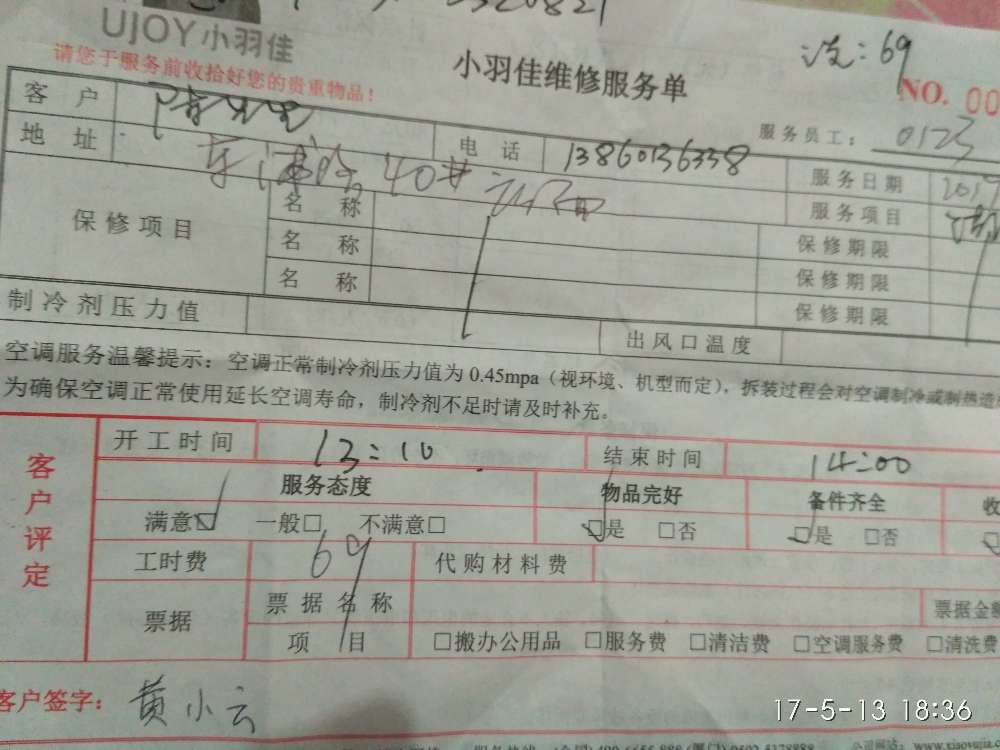 2320821
UJOY小羽佳
请您于服务前收拾好您的贵重物品!
小羽佳维修服务单
69
NO. 00
服务员工: 0123
客 户
电 话 13860136338
服务日期
地 址 40#
服务项目
保修项目
名 称 保修期限
名 称 保修期限
名 称 保修期限
制冷剂压力值 出风口温度
空调服务温馨提示: 空调正常制冷剂压力值为 0.45mpa (视环境、机型而定), 拆装过程会对空调制冷或制热造
为确保空调正常使用延长空调寿命, 制冷剂不足时请及时补充。
客户评定
开工时间 13:10 结束时间 14:00
服务态度 物品完好 备件齐全 收
满意☑ 一般□ 不满意□ ☑是 □否 ☑是 □否
工时费 69 代购材料费
票据 票据名称 票据金额
项 目 □搬办公用品 □服务费 □清洁费 □空调服务费 □清洗费
客户签字: 黄小云
17-5-13 18:36